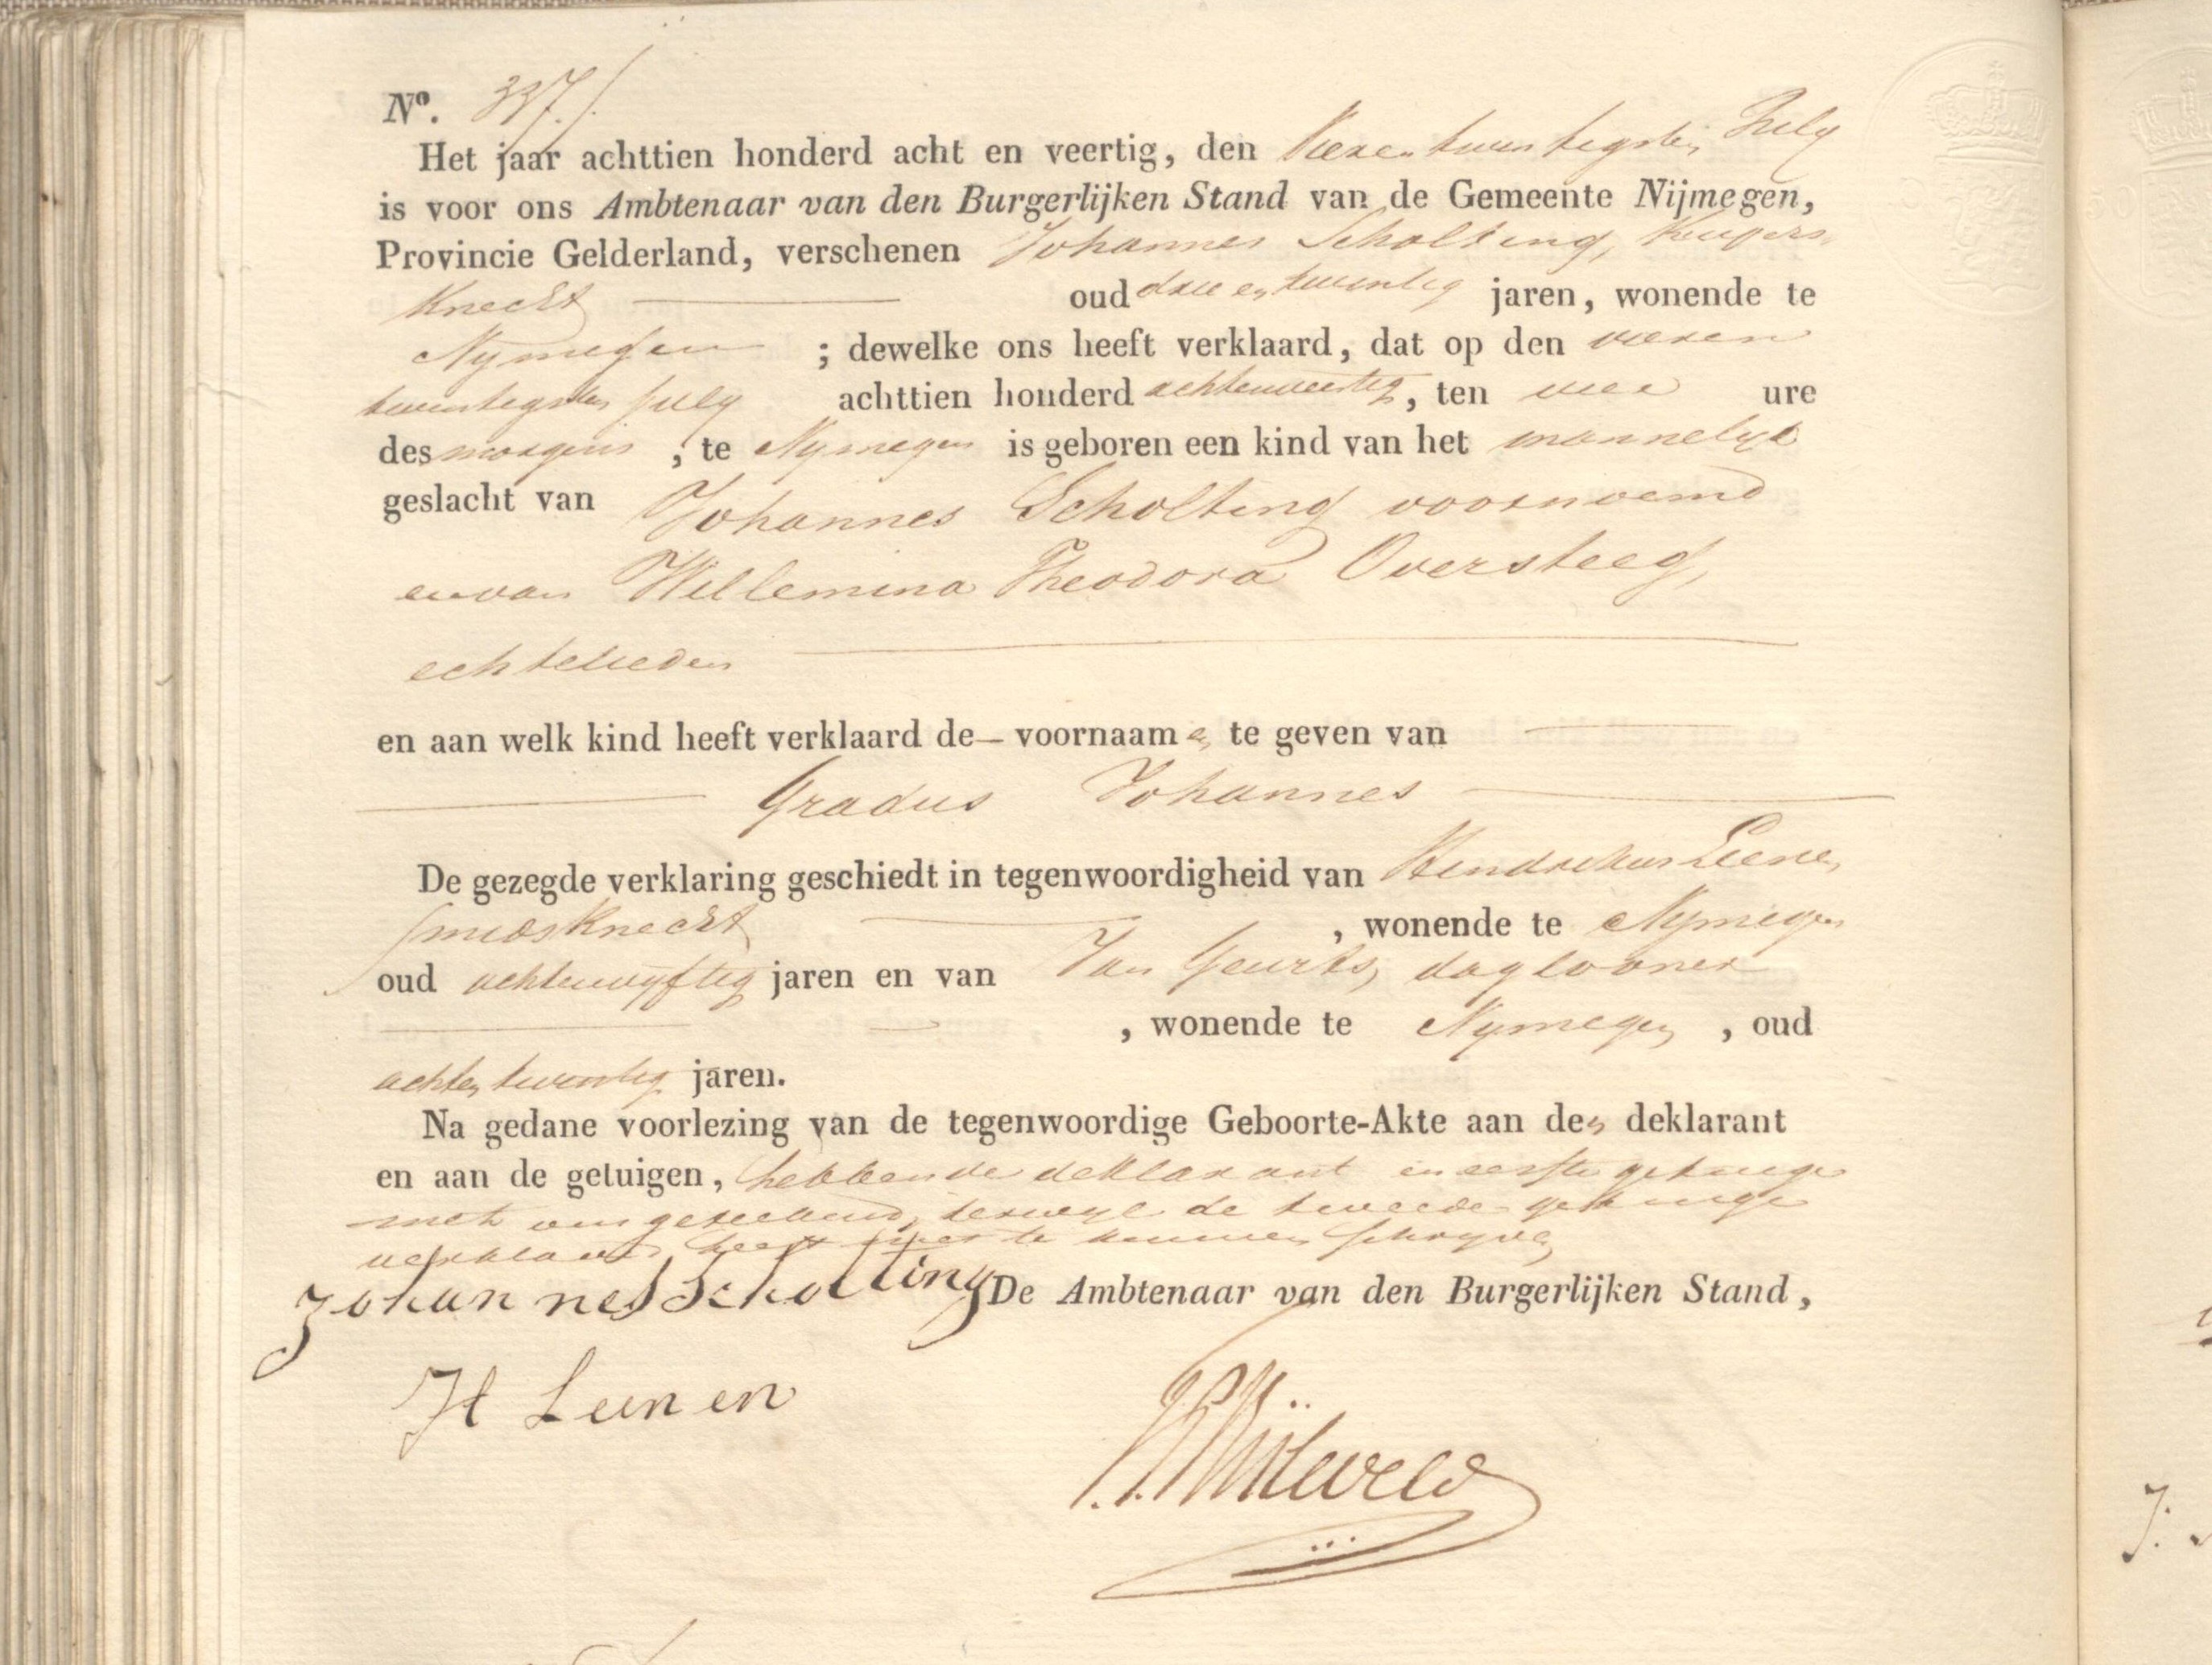 N°. 337./.
Het jaar achttien honderd acht en veertig, den Vierentwintigsten July
is voor ons Ambtenaar van den Burgerlijken Stand van de Gemeente Nijmegen,
Provincie Gelderland, verschenen Johannes Scholting, Kuipers
Knecht oud drie en twintig jaren, wonende te
Nymegen ; dewelke ons heeft verklaard, dat op den vieren
twintigsten July achttien honderd achtenveertig, ten vier ure
des morgens , te Nymegen is geboren een kind van het mannelyk
geslacht van Johannes Scholting voornoemd
en van Willemina Theodora Oversteeg,
echtelieden
en aan welk kind heeft verklaard de voornaamen te geven van
Gradus Johannes
De gezegde verklaring geschiedt in tegenwoordigheid van Hendrikus
smidsKnecht , wonende te Nymegen
oud achtenvyftig jaren en van Jan Geurts, daglooner
, wonende te Nymegen , oud
achtentwintig jaren.
Na gedane voorlezing van de tegenwoordige Geboorte-Akte aan den deklarant
en aan de getuigen, hebbende deklarant en eerste getuige
met ons geteekend, terwyl de tweede getuige
verklaard heeft niet te kunnen schryven
Johannes Scholting De Ambtenaar van den Burgerlijken Stand,
H Leunen